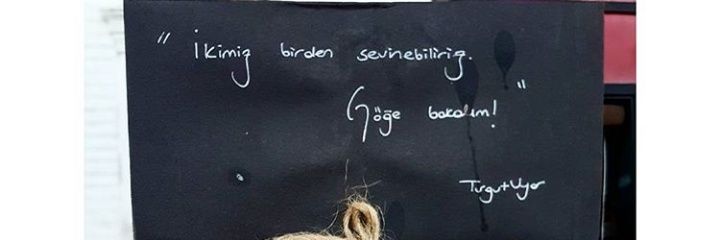 " İkimiz birden sevinebiliriz.
Göğe bakalım! "
Turgut Uyar